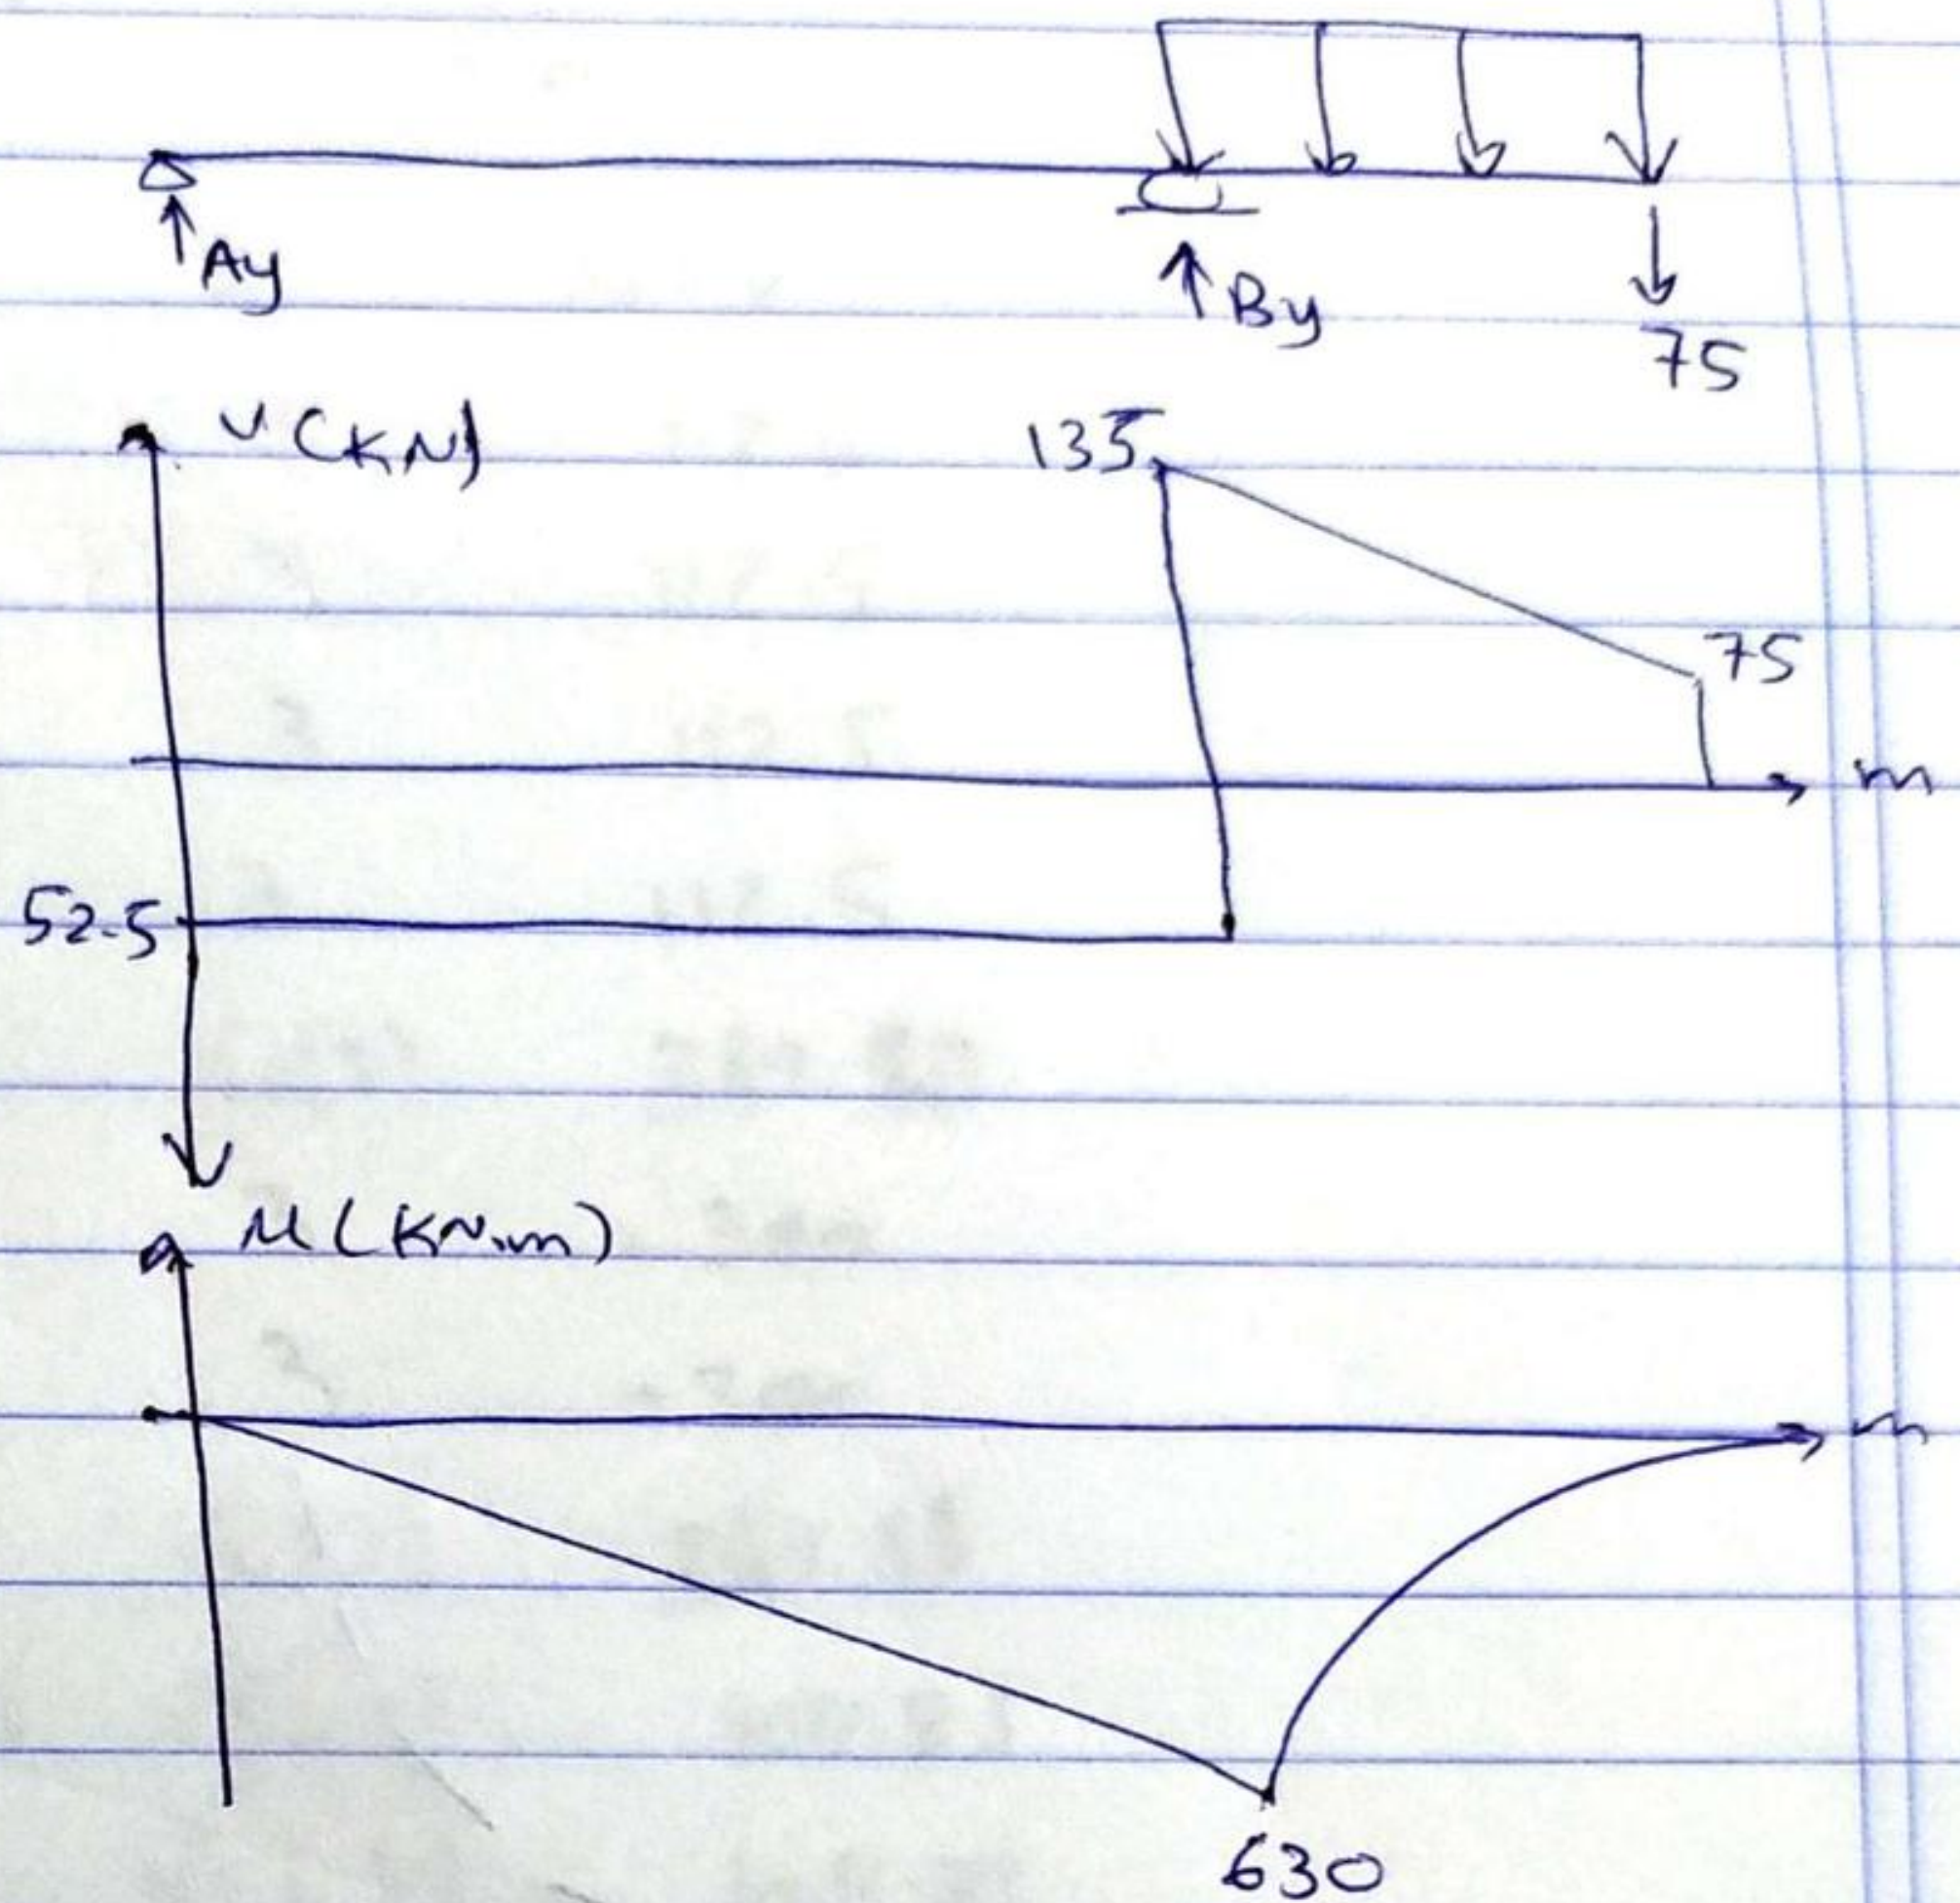 Ay
By
75
V (KN)
135
75
m
52.5
M (KN.m)
m
630